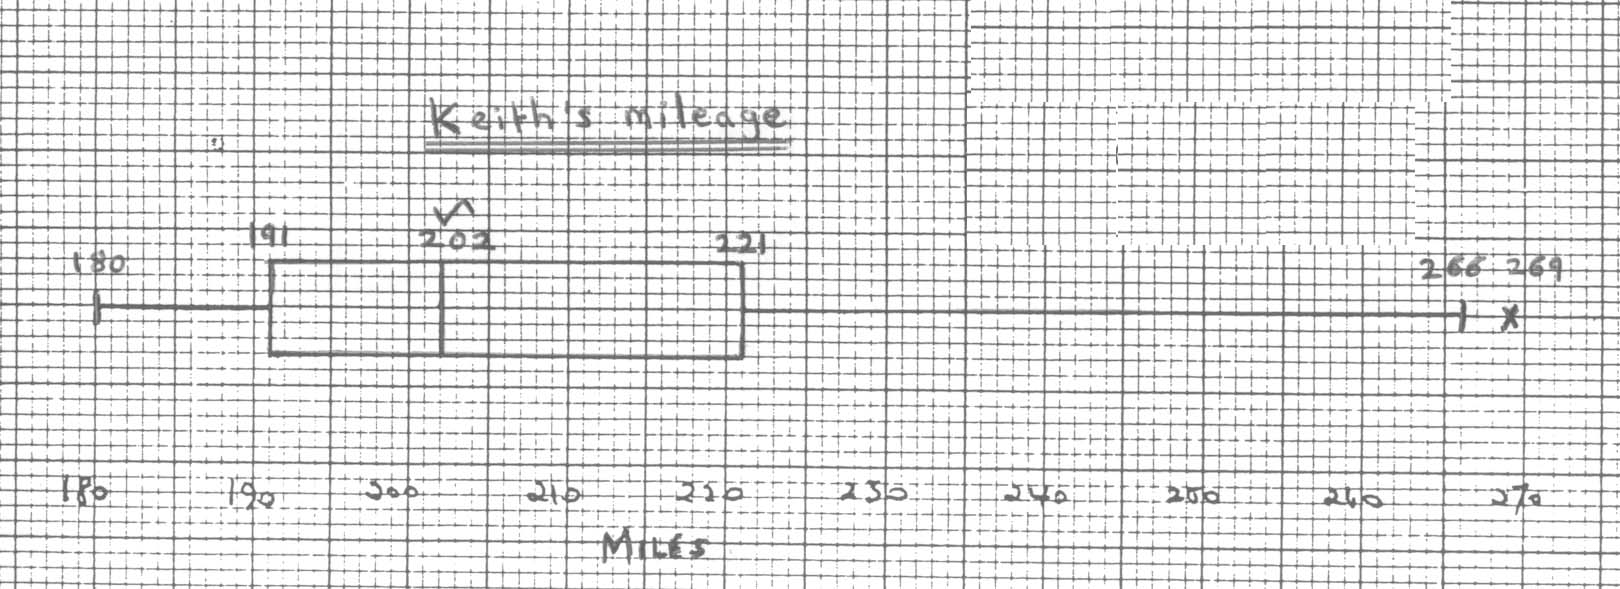 Keith's mileage
180 191 202 221 266 269
180 190 200 210 220 230 240 250 260 270
MILES